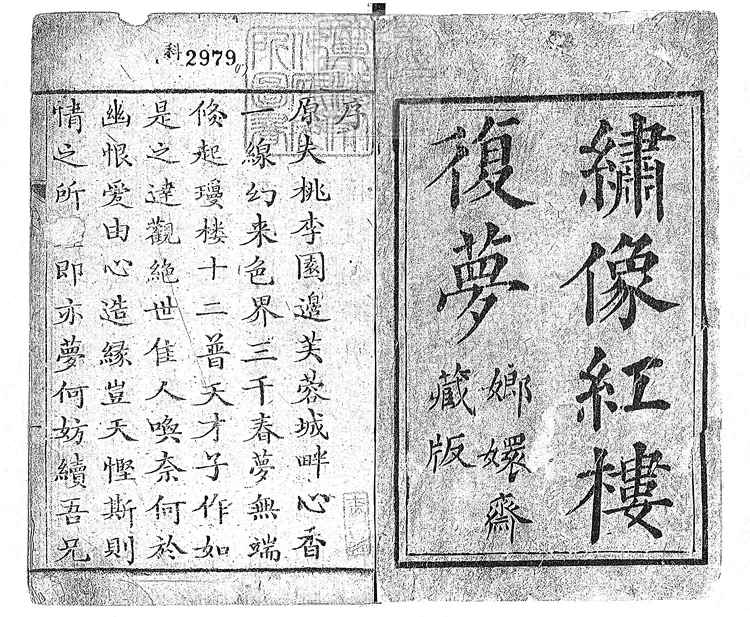 繡像紅樓
復夢
嫏嬛齋
藏版
科 2979
序
原夫桃李園邊芙蓉城畔心香
一線幻来色界三千春夢無端
倐起瓊楼十二普天才子作如
是之達觀絶世佳人喚奈何於
幽恨爱由心造緣豈天慳斯則
情之所即亦夢何妨續吾兄